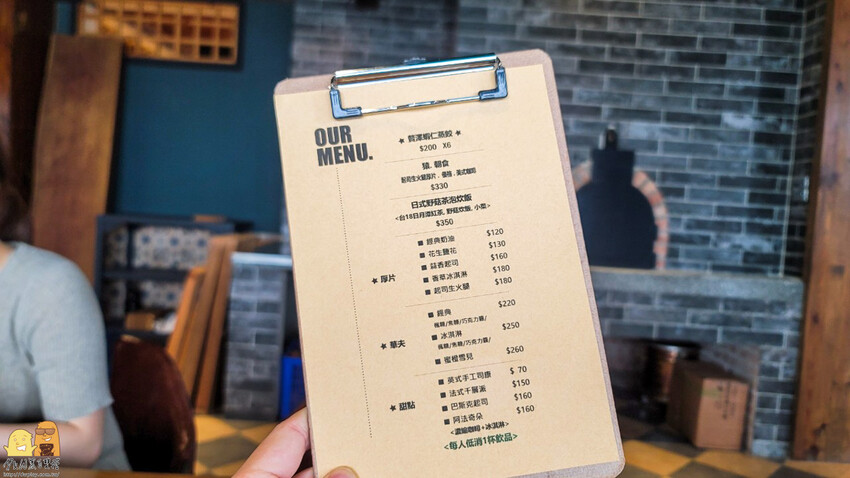 OUR
MENU.
★ 賀澤蝦仁蒸餃 ★
$200 X6
猿. 朝食
起司生火腿厚片. 優格. 美式咖啡
$330
日式野菇茶泡炊飯
<台18日月潭紅茶, 野菇炊飯, 小菜>
$350
★ 厚片
■ 經典奶油 $120
■ 花生鹽花 $130
■ 蒜香起司 $160
■ 香草冰淇淋 $180
■ 起司生火腿 $180
★ 華夫
■ 經典 $220
楓糖/焦糖/巧克力醬/
■ 冰淇淋 $250
楓糖/焦糖/巧克力醬/
■ 蜜橙雪兒 $260
★ 甜點
■ 英式手工司康 $ 70
■ 法式千層派 $150
■ 巴斯克起司 $160
■ 阿法奇朵 $160
<濃縮咖啡+冰淇淋>
<每人低消1杯飲品>